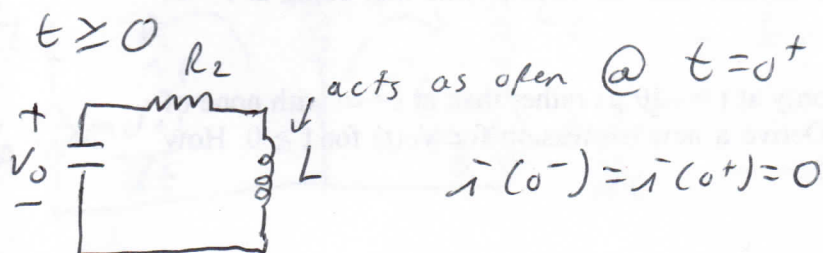 t ≥ 0
R₂
acts as open @ t=0⁺
+
V₀
-
L
i(0⁻) = i(0⁺) = 0